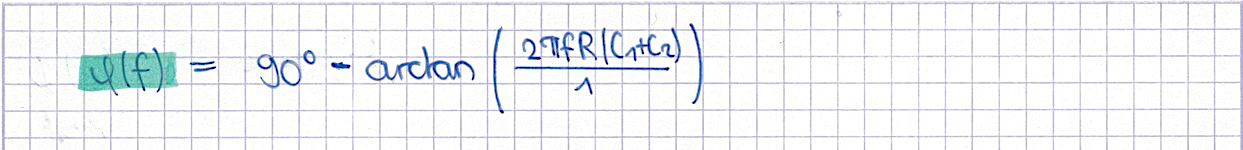 φ(f) = 90° - arctan (2πfR(C₁+C₂) / 1)